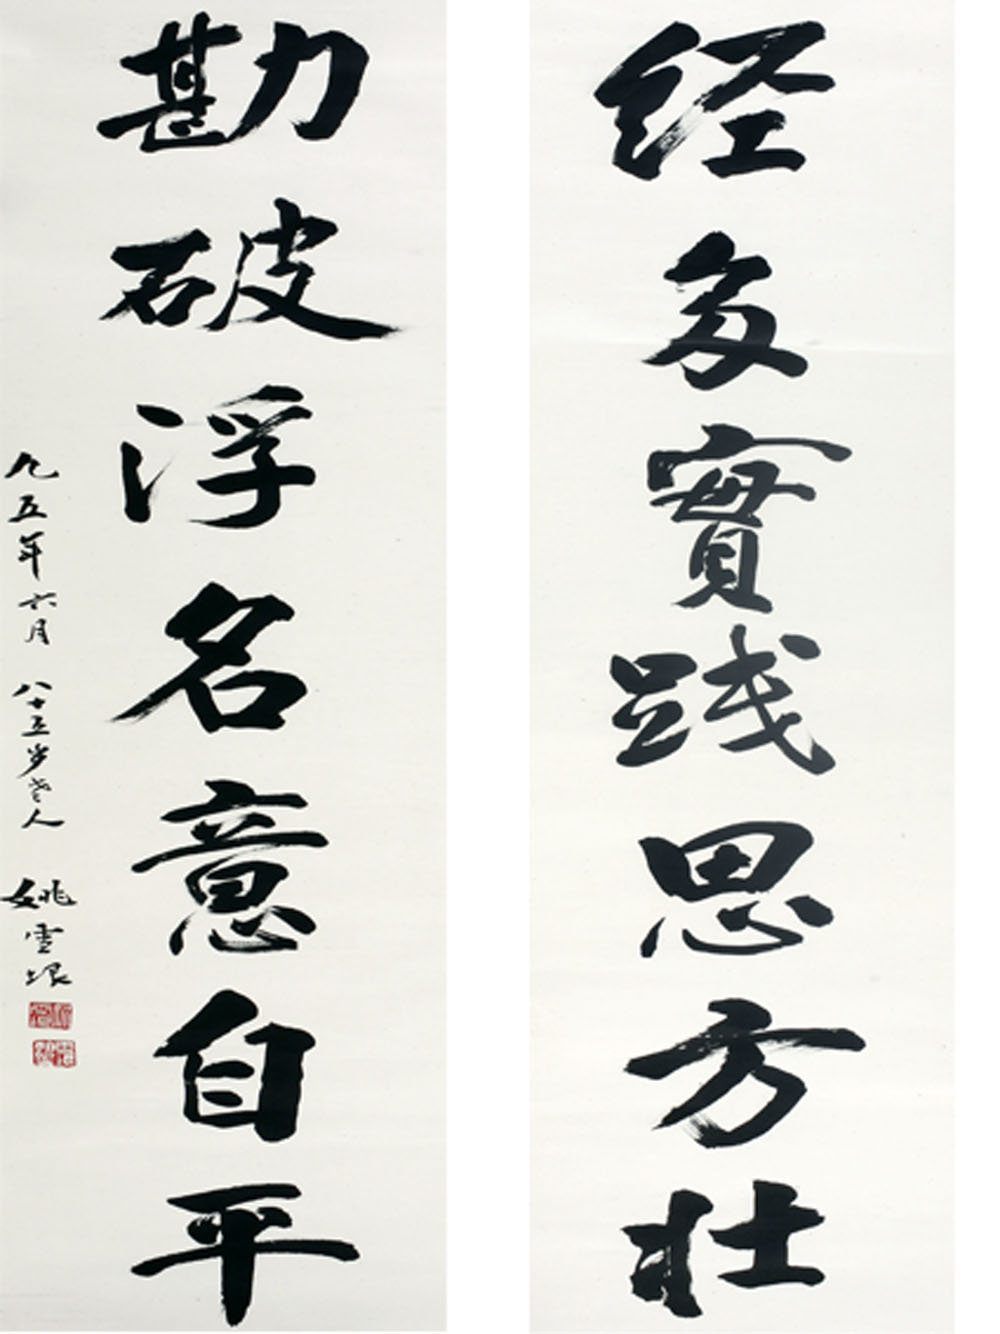 经多實践思方壮
勘破浮名意自平
九五年六月 八十五岁老人
姚雪垠